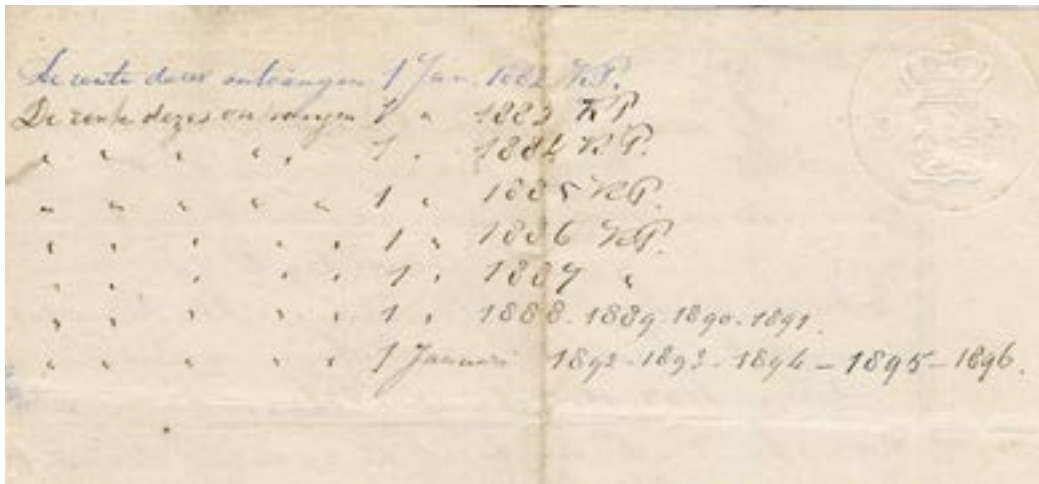 De rente dezes ontvangen 1 Jan. 1882 KP.
De rente dezes ontvangen 1 " 1883 KP
" " " " 1 " 1884 KP.
" " " " " 1 " 1885 KP.
" " " " " 1 " 1886 KP.
" " " " " 1 " 1887 "
" " " " " 1 " 1888. 1889. 1890. 1891.
" " " " " 1 Januari 1892 - 1893 - 1894 - 1895 - 1896.